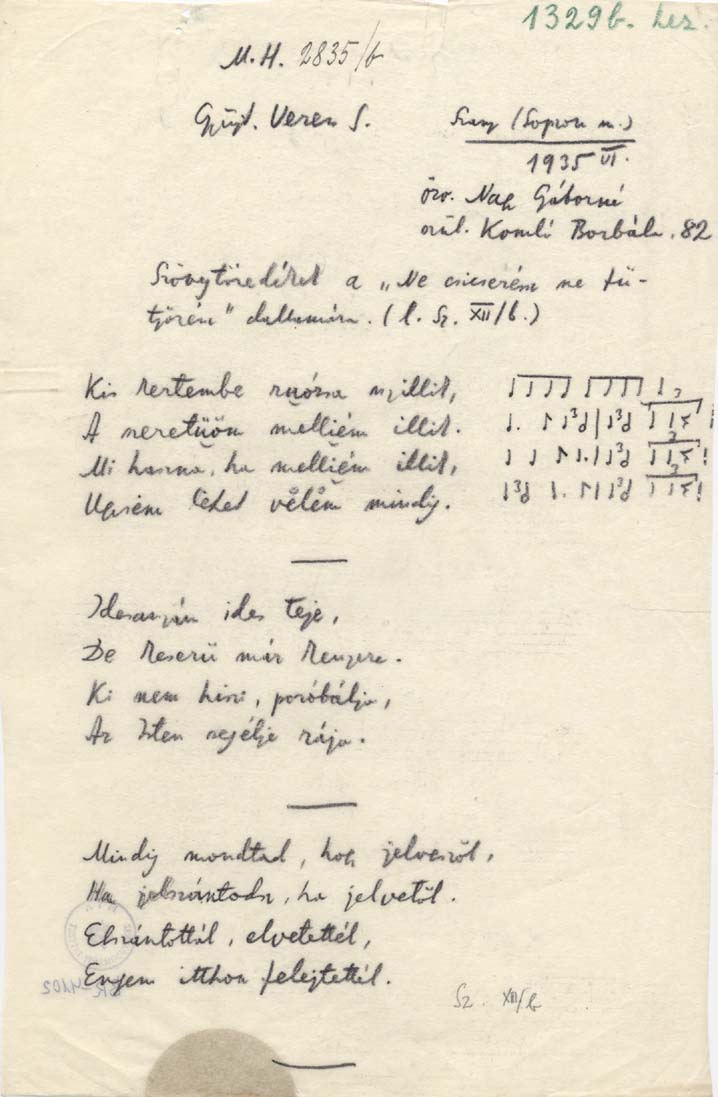 1329b. lsz.
M.H. 2835/b
Gyüjt. Veress S.
Szany (Sopron m.)
1935 VI.
özv. Nagy Gáborné
szül. Komló Borbála. 82
Szövegtöredékek a „Ne csicserész ne tü-
työrész" dallamára. (l. Sz. XII/b.)
Kis kertembe ruózsa nyillik,
A szeretüöm melliém illik.
Mi haszna, ha melliém illik,
Ugysem lehet vēlēm mindig.
Idesanyám ides teje,
De keserü már kenyere.
Ki nem hiszi, poróbálja,
Az Isten segélje rája.
Mindig mondtad, hogy jelveszöl,
Ha jelszántodsz, ha jelvetöl.
Elszántottál, elvetettél,
Engem itthon felejtettél.
Sz. XII/b